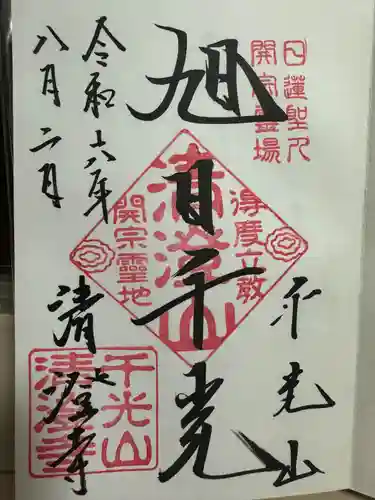 日蓮聖人
開宗霊場
千光山
旭日千光
清澄山
得度立教
開宗靈地
清澄寺
千光山
清澄寺
令和六年
八月二日